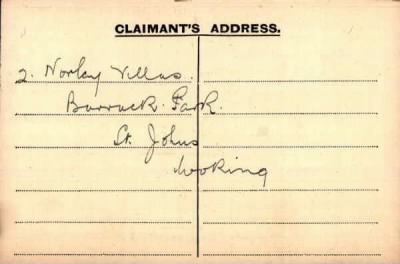 CLAIMANT'S ADDRESS.
2. Norley Villas.
Barrack Park.
St Johns
Woking